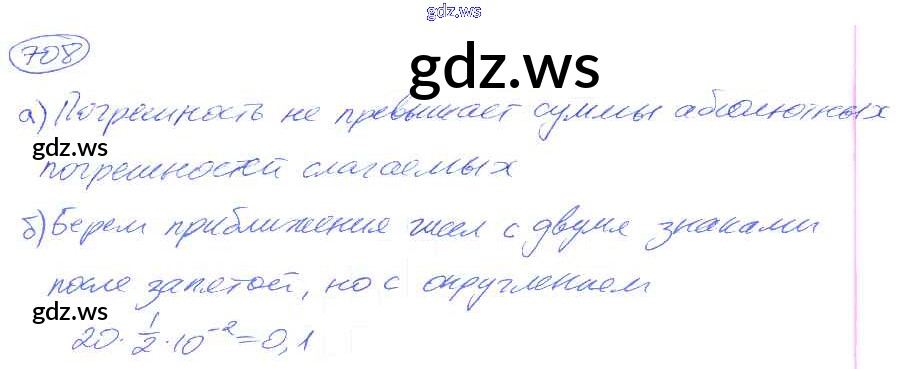 gdz.ws
708
gdz.ws
а) Погрешность не превышает суммы абсолютных
gdz.ws
погрешностей слагаемых
б) Берем приближения чисел с двумя знаками
после запятой, но с округлением
gdz.ws
20·1/2·10⁻²=0,1